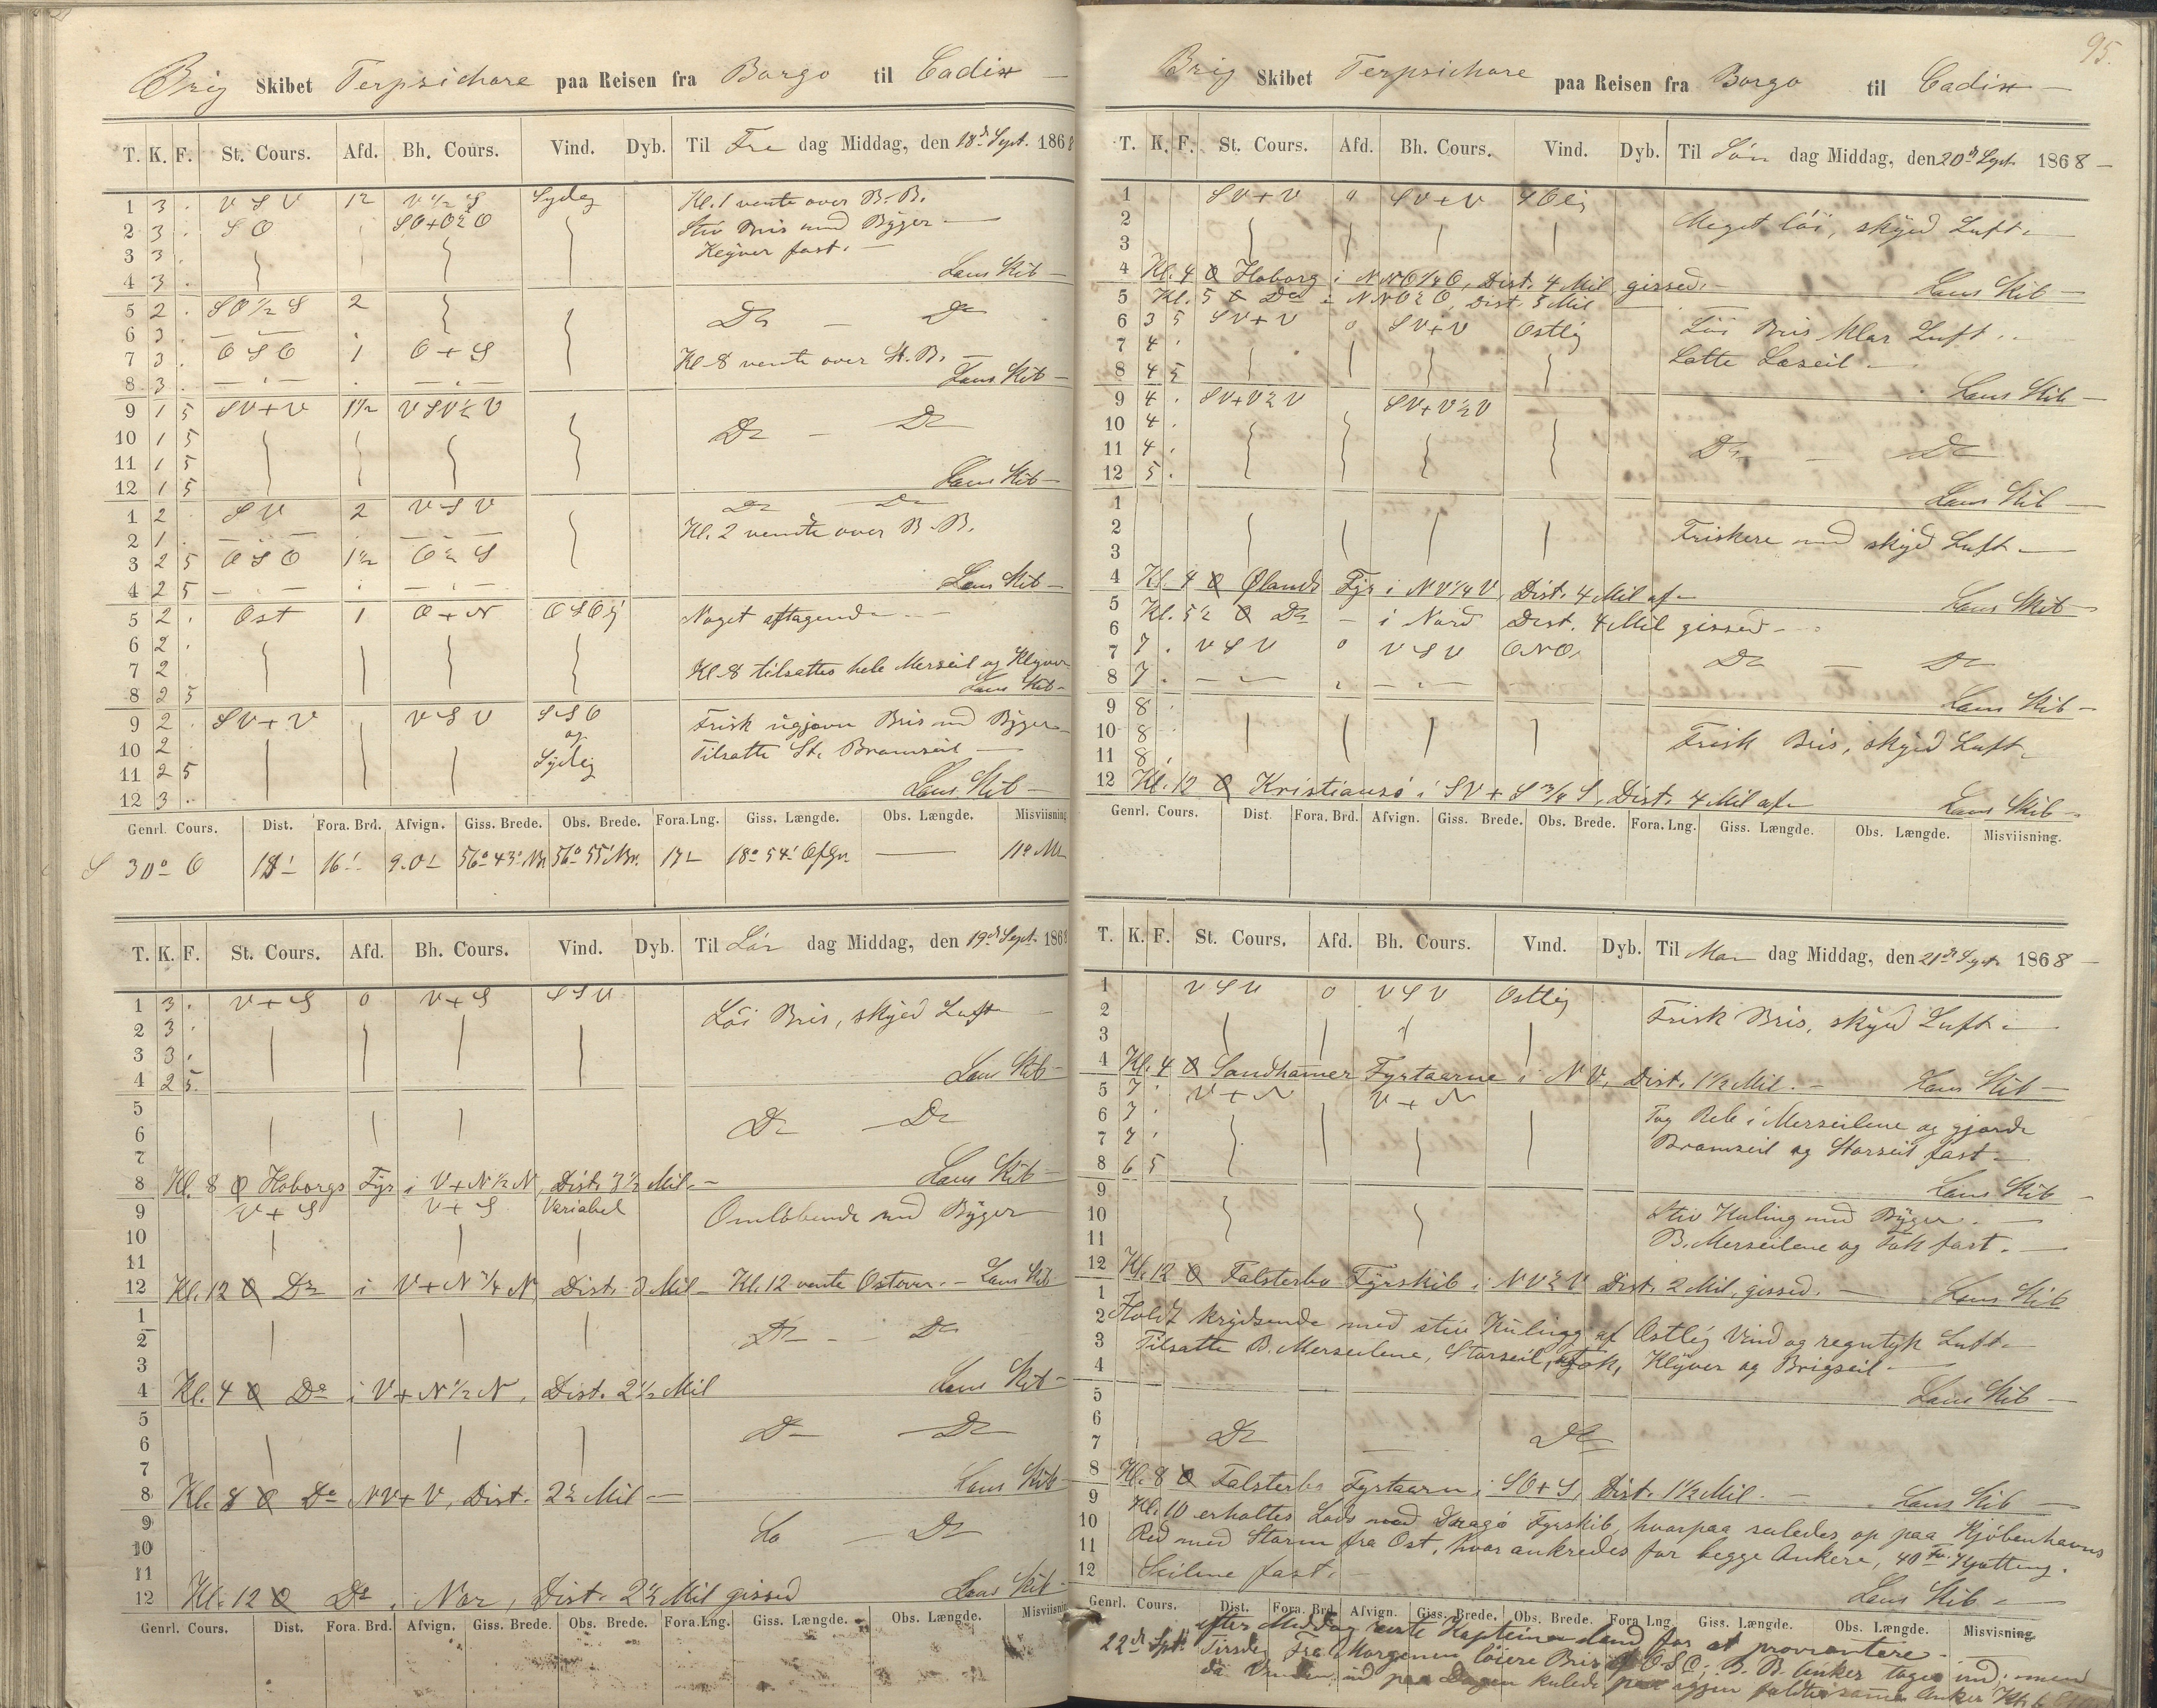 Brig Skibet Terpsichore paa Reisen fra Borgo til Cadix
T. K. F. St. Cours. Afd. Bh. Cours. Vind. Dyb. Til Fre dag Middag, den 18d Sept. 1868
1 3 . V S V 12 V 1/2 S Sydlig Kl. 1 vente over B.B.
2 3 . S O SO+O½O Stiv Bris med Byger
3 3 . Klyver fast.
4 3 . Lens Skib
5 2 . SO 1/2 S 2 Do — Do
6 3 .
7 3 . O S O 1 O + S Kl. 8 vente over St. B.
8 3 . Lens Skib
9 1 5 SV+V 1½ VSV½V
10 1 5 Do — Do
11 1 5
12 1 5 Lens Skib
1 2 S V 2 V S V Do Do
2 1 . Kl. 2 vendte over B.B.
3 2 5 O S O 1½ O ½ S
4 2 5 Lens Skib
5 2 . Ost 1 O + N O S Olig Noget aftagende
6 2 .
7 2 Kl. 8 tilsattes hele Merseil og Klyver
8 2 5 Lens Skib
9 2 . SV+V V S V S S O Frisk ugjævn Bris med Byger
10 2 og Tilsatte St. Bramseil
11 2 5 Sydlig
12 3 . Lens Skib
Genrl. Cours. Dist. Fora. Brd. Afvign. Giss. Brede. Obs. Brede. Fora. Lng. Giss. Længde. Obs. Længde. Misviisning
S 30° O 18' 16' 9.0' 56° 43' Nr. 56° 55' Nr. 17' 18° 54' Ofgr. — 11° Nv
T. K. F. St. Cours. Afd. Bh. Cours. Vind. Dyb. Til Lör dag Middag, den 19d Sept. 1868
1 3 . V + S 0 V + S S S V Löi Bris, skyed Luft
2 3 .
3 3 .
4 2 5. Lens Skib
5
6 Do — Do
7
8 Kl. 8 O Hoborgs Fyr i V+N½N, Dist. 3½ Mil. Lens Skib
9 V + S V + S Variabel Omlöbende med Byger
10
11
12 Kl. 12 O Do i V+N ¾ N Dist. 3 Mil — Kl. 12 vente Ostover. — Lens Skib
1
2 Do — Do
3
4 Kl. 4 O Do i V+N½N, Dist. 2½ Mil Lens Skib
5
6 Do — Do
7
8 Kl. 8 O Do NV+V, Dist. 2½ Mil — Lens Skib
9
10 Do — Do
11
12 Kl. 12 O Do i Nor, Dist. 2½ Mil gissed Lens Skib
Genrl. Cours. Dist. Fora. Brd. Afvign. Giss. Brede. Obs. Brede. Fora. Lng. Giss. Længde. Obs. Længde. Misviisning
95.
Brig Skibet Terpsichore paa Reisen fra Borgo til Cadix
T. K. F. St. Cours. Afd. Bh. Cours. Vind. Dyb. Til Sön dag Middag, den 20d Sept. 1868
1 SV+V 0 SV+V S Olig
2 Meget löi, skyed Luft.
3
4 Kl. 4 O Hoborg i NNO¼O, Dist. 4 Mil gissed. Lens Skib
5 Kl. 5 O Do i NNO½O, Dist. 5 Mil
6 3 5 SV+V 0 SV+V Ostlig Löi Bris klar Luft.
7 4 . Satte Læseil
8 4 5 Lens Skib
9 4 . SV+V½V SV+V½V
10 4 .
11 4 . Do — Do
12 5 . Lens Skib
1
2 Friskere med skyed Luft
3
4 Kl. 4 O Ølands Fyr i NV¼V, Dist. 4 Mil af Lens Skib
5 Kl. 5½ O Do — i Nord Dist. 4 Mil gissed
6
7 7 . V S V 0 V S V ONO. Do — Do
8 7 . Lens Skib
9 8
10 8 Frisk Bris, skyed Luft
11 8 .
12 Kl. 12 O Kristiansö i SV+S¾S, Dist. 4 Mil af Lens Skib
Genrl. Cours. Dist. Fora. Brd. Afvign. Giss. Brede. Obs. Brede. Fora. Lng. Giss. Længde. Obs. Længde. Misviisning.
T. K. F. St. Cours. Afd. Bh. Cours. Vind. Dyb. Til Man dag Middag, den 21d Sept. 1868
1 V S V 0 V S V Ostlig
2 Frisk Bris, skyed Luft
3
4 Kl. 4 O Sandhamer Fyrtaarne i NV, Dist. 1½ Mil. — Lens Skib
5 7 . V + N V + N
6 7 . Tog Reb i Merseilene og gjorde
7 7 . Bramseil og Storseil fast
8 6 5 Lens Skib
9
10 Stiv Kuling med Byger.
11 B. Merseilene og Fok fast.
12 Kl. 12 O Falsterbo Fyrskib i NV½V Dist. 2 Mil, gissed. — Lens Skib
1
2 Holdt krydsende med stiv Kuling af Ostlig Vind og regntyk Luft
3 Tilsatte B. Merseilene, Storseil, Fok, Klyver og Brigseil
4 Lens Skib
5
6
7 Do — Do
8 Kl. 8 O Falsterbo Fyrtaarn i SO+S, Dist. 1½ Mil. — Lens Skib
9 Kl. 10 erholtes Lods med Dragö Fyrskib, hvorpaa seiledes op paa Kjöbenhavns
10 Red med Storm fra Ost, hvor ankredes for begge Ankere, 40 Fv. Kjætting.
11 Seilene fast.
12 Lens Skib
Genrl. Cours. Dist. Fora. Brd. Afvign. Giss. Brede. Obs. Brede. Fora Lng Giss. Længde. Obs. Længde. Misvisning
efter Middag Kapteinen land for at provrantere
22d Spt. Tirsdag Fra Morgenen löiere Bris af OSO; B. B. Anker toges ind; men
da Vinden ud paa Dagen kulede igjen faldtes samme Anker